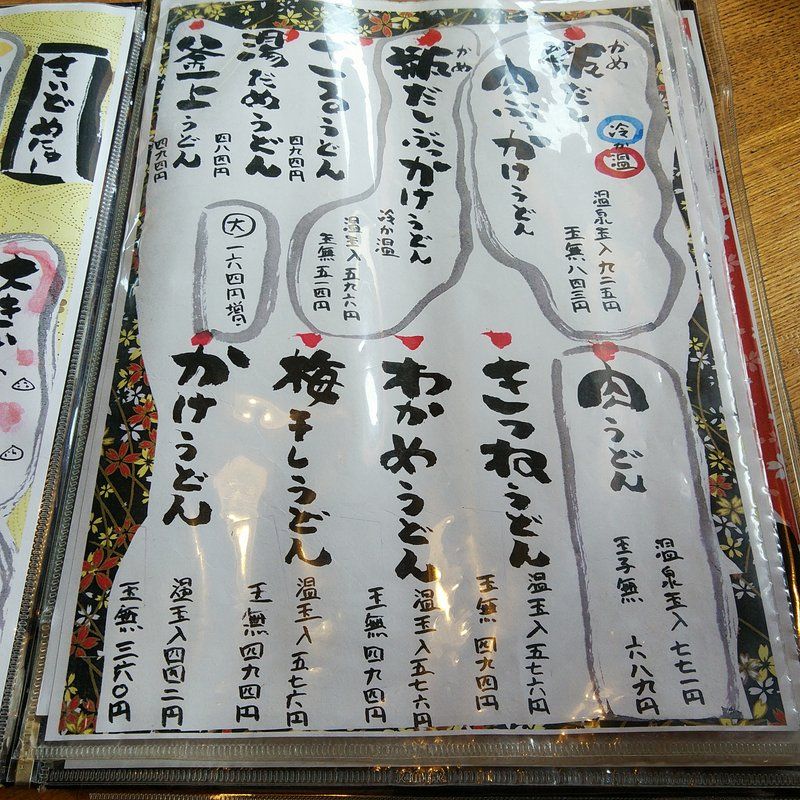 かめ
瓶だし
肉ぶっかけうどん
冷か温
温泉玉入 九二五円
玉無 八四三円
かめ
瓶だしぶっかけうどん
冷か温
温玉入 五九六円
玉無 五一四円
ころうどん
四九四円
湯だめうどん
四八四円
釜上うどん
四九四円
大 一六四円増.
肉うどん
温泉玉入 七七一円
玉子無 六八九円
きつねうどん
温玉入 五七六円
玉無 四九四円
わかめうどん
温玉入 五七六円
玉無 四九四円
梅干しうどん
温玉入 五七六円
玉無 四九四円
かけうどん
温玉入 四四二円
玉無 三六〇円
さいどめにゅー
大きい